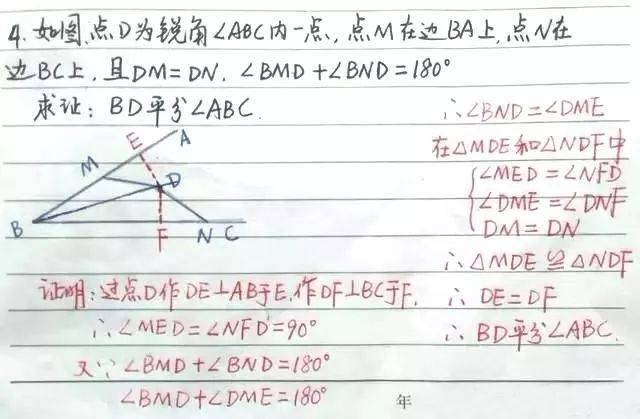 4. 如图,点D为锐角∠ABC内一点,点M在边BA上,点N在
边BC上,且DM=DN,∠BMD+∠BND=180°
求证:BD平分∠ABC.
E
A
M
D
B
F
N
C
证明:过点D作DE⊥AB于E,作DF⊥BC于F.
∴∠MED=∠NFD=90°
又∵∠BMD+∠BND=180°
∠BMD+∠DME=180°
∴∠BND=∠DME
在△MDE和△NDF中
∠MED=∠NFD
∠DME=∠DNF
DM=DN
∴△MDE≌△NDF
∴DE=DF
∴BD平分∠ABC.
年